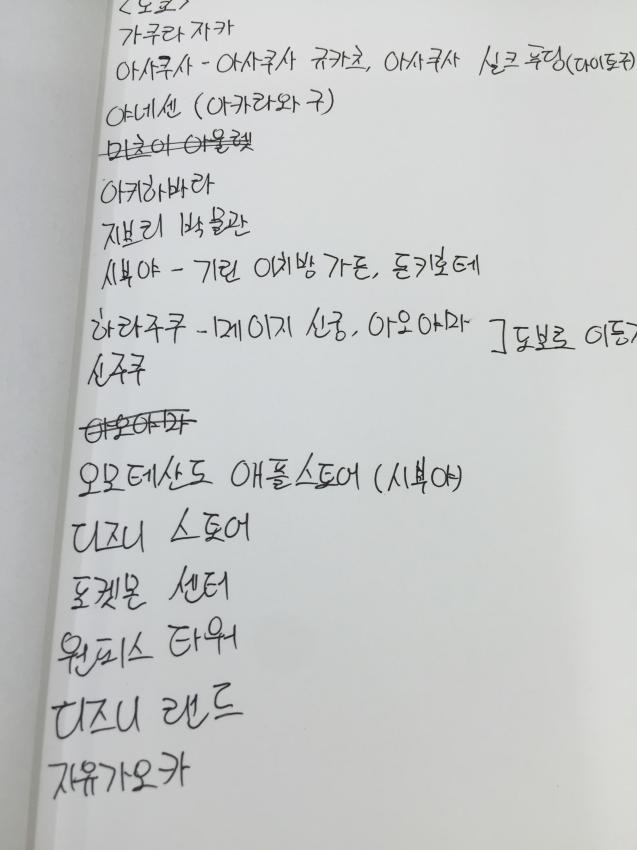 <도쿄>
가쿠라 자카
아사쿠사 - 아사쿠사 규카츠, 아사쿠사 실크 푸딩(다이토구)
야네센 (아카라와 구)
미츠이 아울렛
아키하바라
지브리 박물관
시부야 - 기린 이치방 가든, 돈키호테
하라주쿠 - 메이지 신궁, 아오야마 ] 도보로 이동
신주쿠
아오야마
오모테산도 애플스토어 (시부야)
디즈니 스토어
포켓몬 센터
원피스 타워
디즈니 랜드
자유가오카